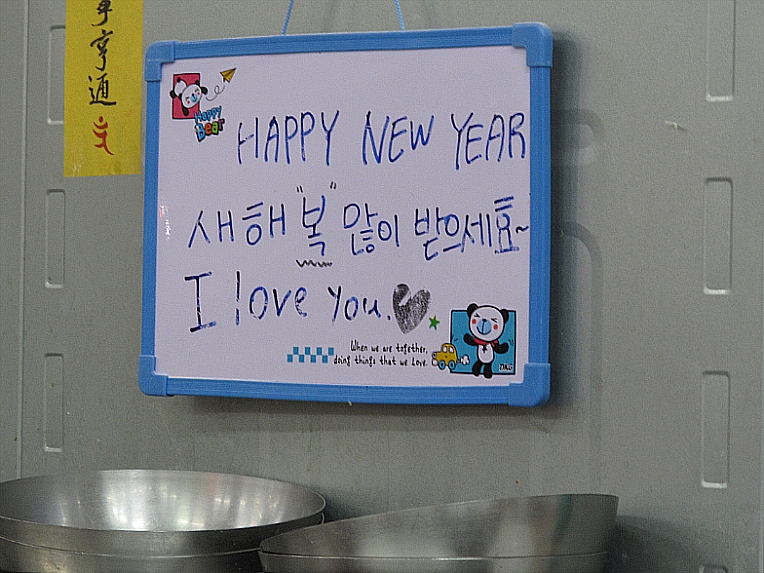 事亨通
Happy
Bear
HAPPY NEW YEAR
새해 "복" 많이 받으세효~
I love you.
When we are together,
doing things that we love.